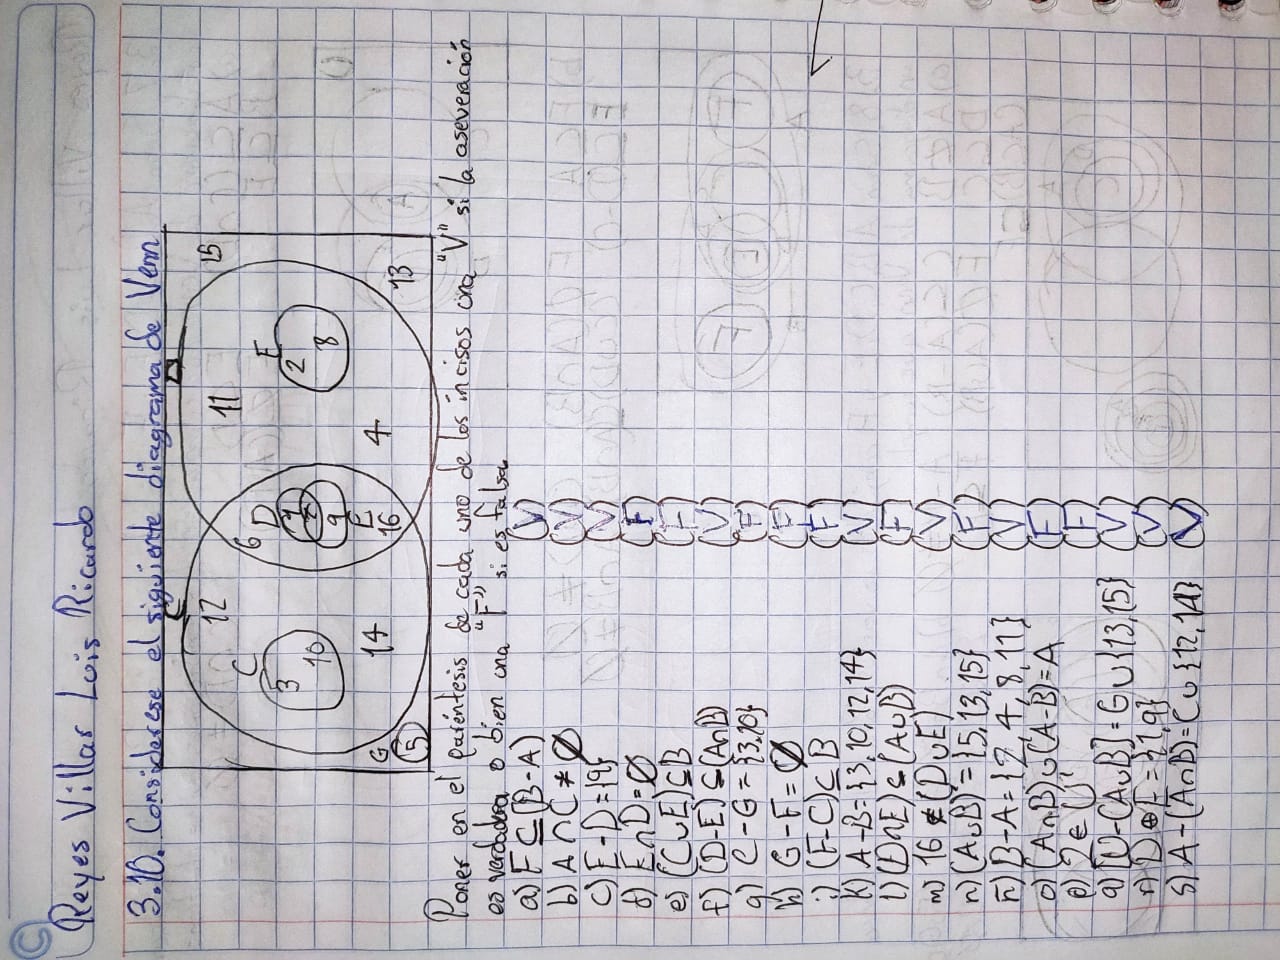 ©
Reyes Villar Luis Ricardo
3.10. Considerese el siguiente diagrama de Venn
12 11 15
6
C D E
3 1 2
10 7 8
9
E
14 16 4
G 13
5
Poner en el paréntesis de cada uno de los incisos una "V" si la aseveración
es verdadera o bien una "F" si es falsa
a) F ⊆ (B-A) (V)
b) A ∩ C ≠ Ø (V)
c) E-D={9} (V)
d) E∩D=Ø (F)
e) (C∪E)⊆B (F)
f) (D-E) ⊆ (A∩B) (V)
g) C-G={3,10} (F)
h) G-F=Ø (F)
i) (F-C)⊆B (F)
k) A-B={3,10,12,14} (V)
l) (D∩E)⊆(A∪B) (F)
m) 16 ∉ (D∪E) (V)
n) (A∪B)'={5,13,15} (F)
ñ) B-A={2,4,8,11} (V)
o) (A∩B)∪(A-B)=A (F)
p) 2∈U' (F)
q) [U-(A∪B]=G∪{13,15} (V)
r) D⊕E={1,9} (V)
s) A-(A∩B)=C∪{12,14} (V)